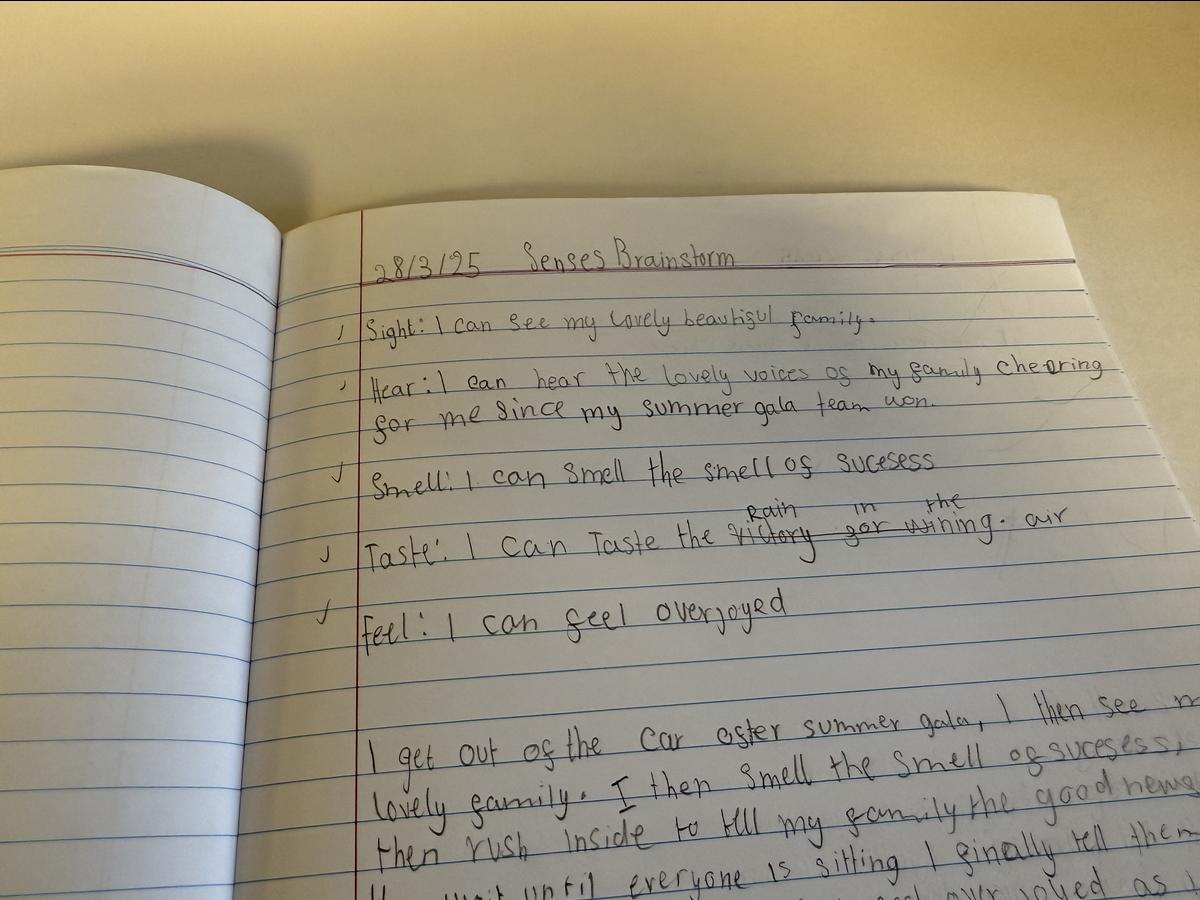 28/3/25 Senses Brainstorm
Sight: I can see my lovely beautiful family.
Hear: I can hear the lovely voices of my family cheering
for me since my summer gala team won.
Smell: I can smell the smell of sucesess
Rain in the
Taste: I can Taste the victory for wining. air
Feel: I can feel overjoyed
I get out of the car after summer gala, I then see
lovely family. I then smell the smell of sucesess,
then rush inside to tell my family the good news
until everyone is sitting I finally tell them
overjoyed as